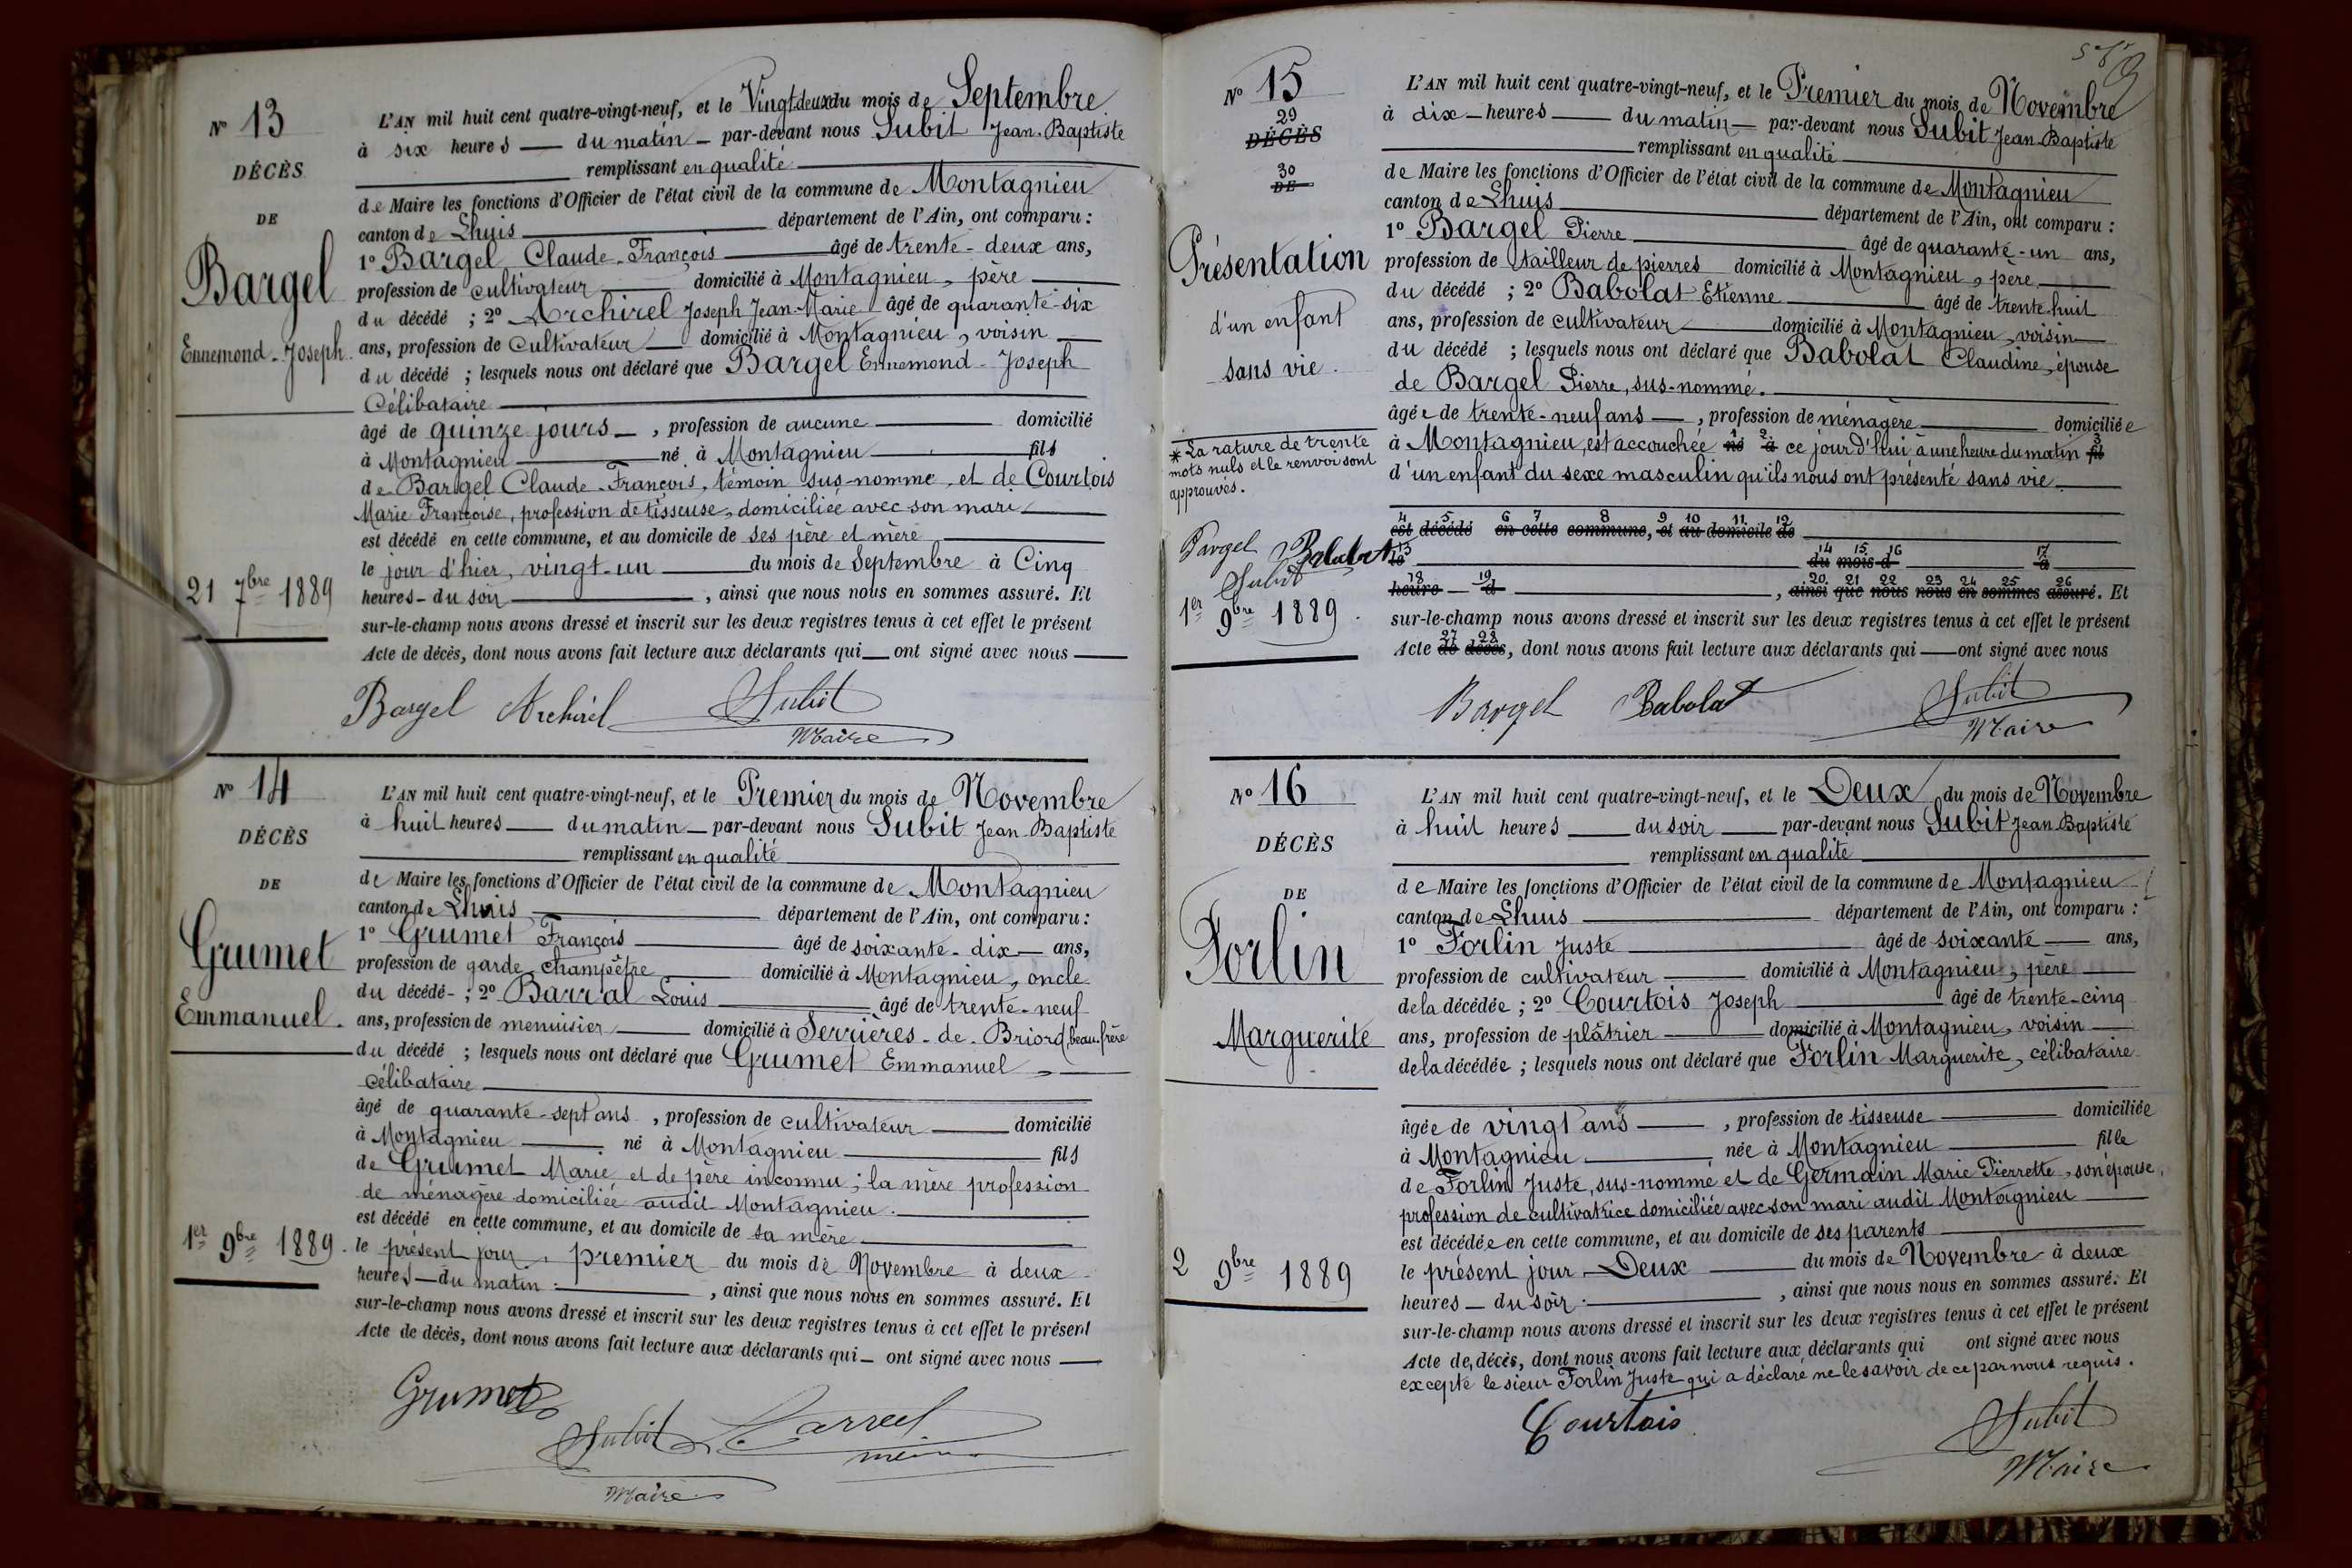 N° 13
DÉCÈS
DE
Bargel
Ennemond-Joseph
21 7bre 1889
L'AN mil huit cent quatre-vingt-neuf, et le Vingt-deux du mois de Septembre
à six heures — du matin — par-devant nous Subit Jean-Baptiste
remplissant en qualité
de Maire les fonctions d'Officier de l'état civil de la commune de Montagnieu
canton de Lhuis département de l'Ain, ont comparu :
1° Bargel Claude-François âgé de trente-deux ans,
profession de cultivateur domicilié à Montagnieu, père
du décédé ; 2° Archirel Joseph Jean-Marie âgé de quarante-six
ans, profession de Cultivateur domicilié à Montagnieu, voisin
du décédé ; lesquels nous ont déclaré que Bargel Ennemond-Joseph
Célibataire
âgé de quinze jours, profession de aucune domicilié
à Montagnieu né à Montagnieu fils
de Bargel Claude-François, témoin sus-nommé, et de Courtois
Marie Françoise, profession de tisseuse, domiciliée avec son mari
est décédé en cette commune, et au domicile de ses père et mère
le jour d'hier, vingt-un du mois de Septembre à Cinq
heures - du soir, ainsi que nous nous en sommes assuré. Et
sur-le-champ nous avons dressé et inscrit sur les deux registres tenus à cet effet le présent
Acte de décès, dont nous avons fait lecture aux déclarants qui — ont signé avec nous
Bargel Archirel Subit
Maire
N° 14
DÉCÈS
DE
Grumet
Emmanuel.
1er 9bre 1889.
L'AN mil huit cent quatre-vingt-neuf, et le Premier du mois de Novembre
à huit heures — du matin — par-devant nous Subit Jean-Baptiste
remplissant en qualité
de Maire les fonctions d'Officier de l'état civil de la commune de Montagnieu
canton de Lhuis département de l'Ain, ont comparu :
1° Grumet François âgé de soixante-dix ans,
profession de garde champêtre domicilié à Montagnieu, oncle
du décédé - ; 2° Barral Louis âgé de trente-neuf
ans, profession de menuisier domicilié à Serrières-de-Briord, beau-frère
du décédé ; lesquels nous ont déclaré que Grumet Emmanuel,
célibataire
âgé de quarante-sept ans, profession de cultivateur domicilié
à Montagnieu né à Montagnieu fils
de Grumet Marie et de père inconnu ; la mère profession
de ménagère domiciliée audit Montagnieu.
est décédé en cette commune, et au domicile de sa mère
le présent jour, premier du mois de Novembre à deux
heures — du matin, ainsi que nous nous en sommes assuré. Et
sur-le-champ nous avons dressé et inscrit sur les deux registres tenus à cet effet le présent
Acte de décès, dont nous avons fait lecture aux déclarants qui — ont signé avec nous
Grumet
Subit Barral
Maire
N° 15
29
DÉCÈS
30
DE
Présentation
d'un enfant
sans vie.
* La rature de trente
mots nuls et le renvoi sont
approuvés.
Bargel Babolat
Subit
1er 9bre 1889.
L'AN mil huit cent quatre-vingt-neuf, et le Premier du mois de Novembre
à dix — heures — du matin — par-devant nous Subit Jean-Baptiste
remplissant en qualité
de Maire les fonctions d'Officier de l'état civil de la commune de Montagnieu
canton de Lhuis département de l'Ain, ont comparu :
1° Bargel Pierre âgé de quarante-un ans,
profession de tailleur de pierres domicilié à Montagnieu, père
du décédé ; 2° Babolat Etienne âgé de trente-huit
ans, profession de cultivateur domicilié à Montagnieu, voisin
du décédé ; lesquels nous ont déclaré que Babolat Claudine, épouse
de Bargel Pierre, sus-nommé.
âgée de trente-neuf ans, profession de ménagère domiciliée
1 2 3
à Montagnieu, est accouchée né à ce jourd'hui à une heure du matin fil
d'un enfant du sexe masculin qu'ils nous ont présenté sans vie
4 5 6 7 8 9 10 11 12
est décédé en cette commune, et au domicile de
13 14 15 16 17
le du mois d à
18 19 20 21 22 23 24 25 26
heure d, ainsi que nous nous en sommes assuré. Et
sur-le-champ nous avons dressé et inscrit sur les deux registres tenus à cet effet le présent
27 28
Acte de décès, dont nous avons fait lecture aux déclarants qui — ont signé avec nous
Bargel Babolat Subit
Maire
N° 16
DÉCÈS
DE
Forlin
Marguerite
2 9bre 1889
L'AN mil huit cent quatre-vingt-neuf, et le Deux du mois de Novembre
à huit heures — du soir — par-devant nous Subit Jean-Baptiste
remplissant en qualité
de Maire les fonctions d'Officier de l'état civil de la commune de Montagnieu
canton de Lhuis département de l'Ain, ont comparu :
1° Forlin Juste âgé de soixante ans,
profession de cultivateur domicilié à Montagnieu, père
de la décédée ; 2° Courtois Joseph âgé de trente-cinq
ans, profession de plâtrier domicilié à Montagnieu, voisin
de la décédée ; lesquels nous ont déclaré que Forlin Marguerite, célibataire
âgée de vingt ans, profession de tisseuse domiciliée
à Montagnieu née à Montagnieu fille
de Forlin Juste, sus-nommé et de Germain Marie Pierrette, son épouse,
profession de cultivatrice domiciliée avec son mari audit Montagnieu
est décédée en cette commune, et au domicile de ses parents
le présent jour, Deux du mois de Novembre à deux
heures — du soir, ainsi que nous nous en sommes assuré. Et
sur-le-champ nous avons dressé et inscrit sur les deux registres tenus à cet effet le présent
Acte de décès, dont nous avons fait lecture aux déclarants qui ont signé avec nous
excepté le sieur Forlin Juste qui a déclaré ne le savoir de ce par nous requis.
Courtois Subit
Maire